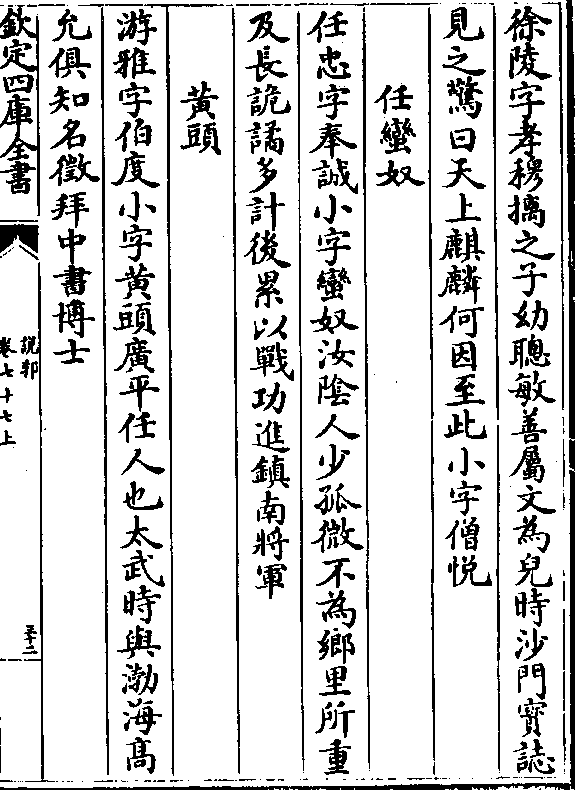 徐陵字孝穆摛之子幼聰敏善屬文為兒時沙門寳誌
見之驚曰天上麒麟何因至此小字僧悦
任蠻奴
任忠字奉誠小字蠻奴汝陰人少孤微不為鄉里所重
及長詭譎多計後累以戰功進鎮南將軍
黄頭
游雅字伯度小字黄頭廣平任人也太武時與渤海髙
允俱知名徵拜中書博士
欽定四庫全書
說郛
卷七十七上
三十二